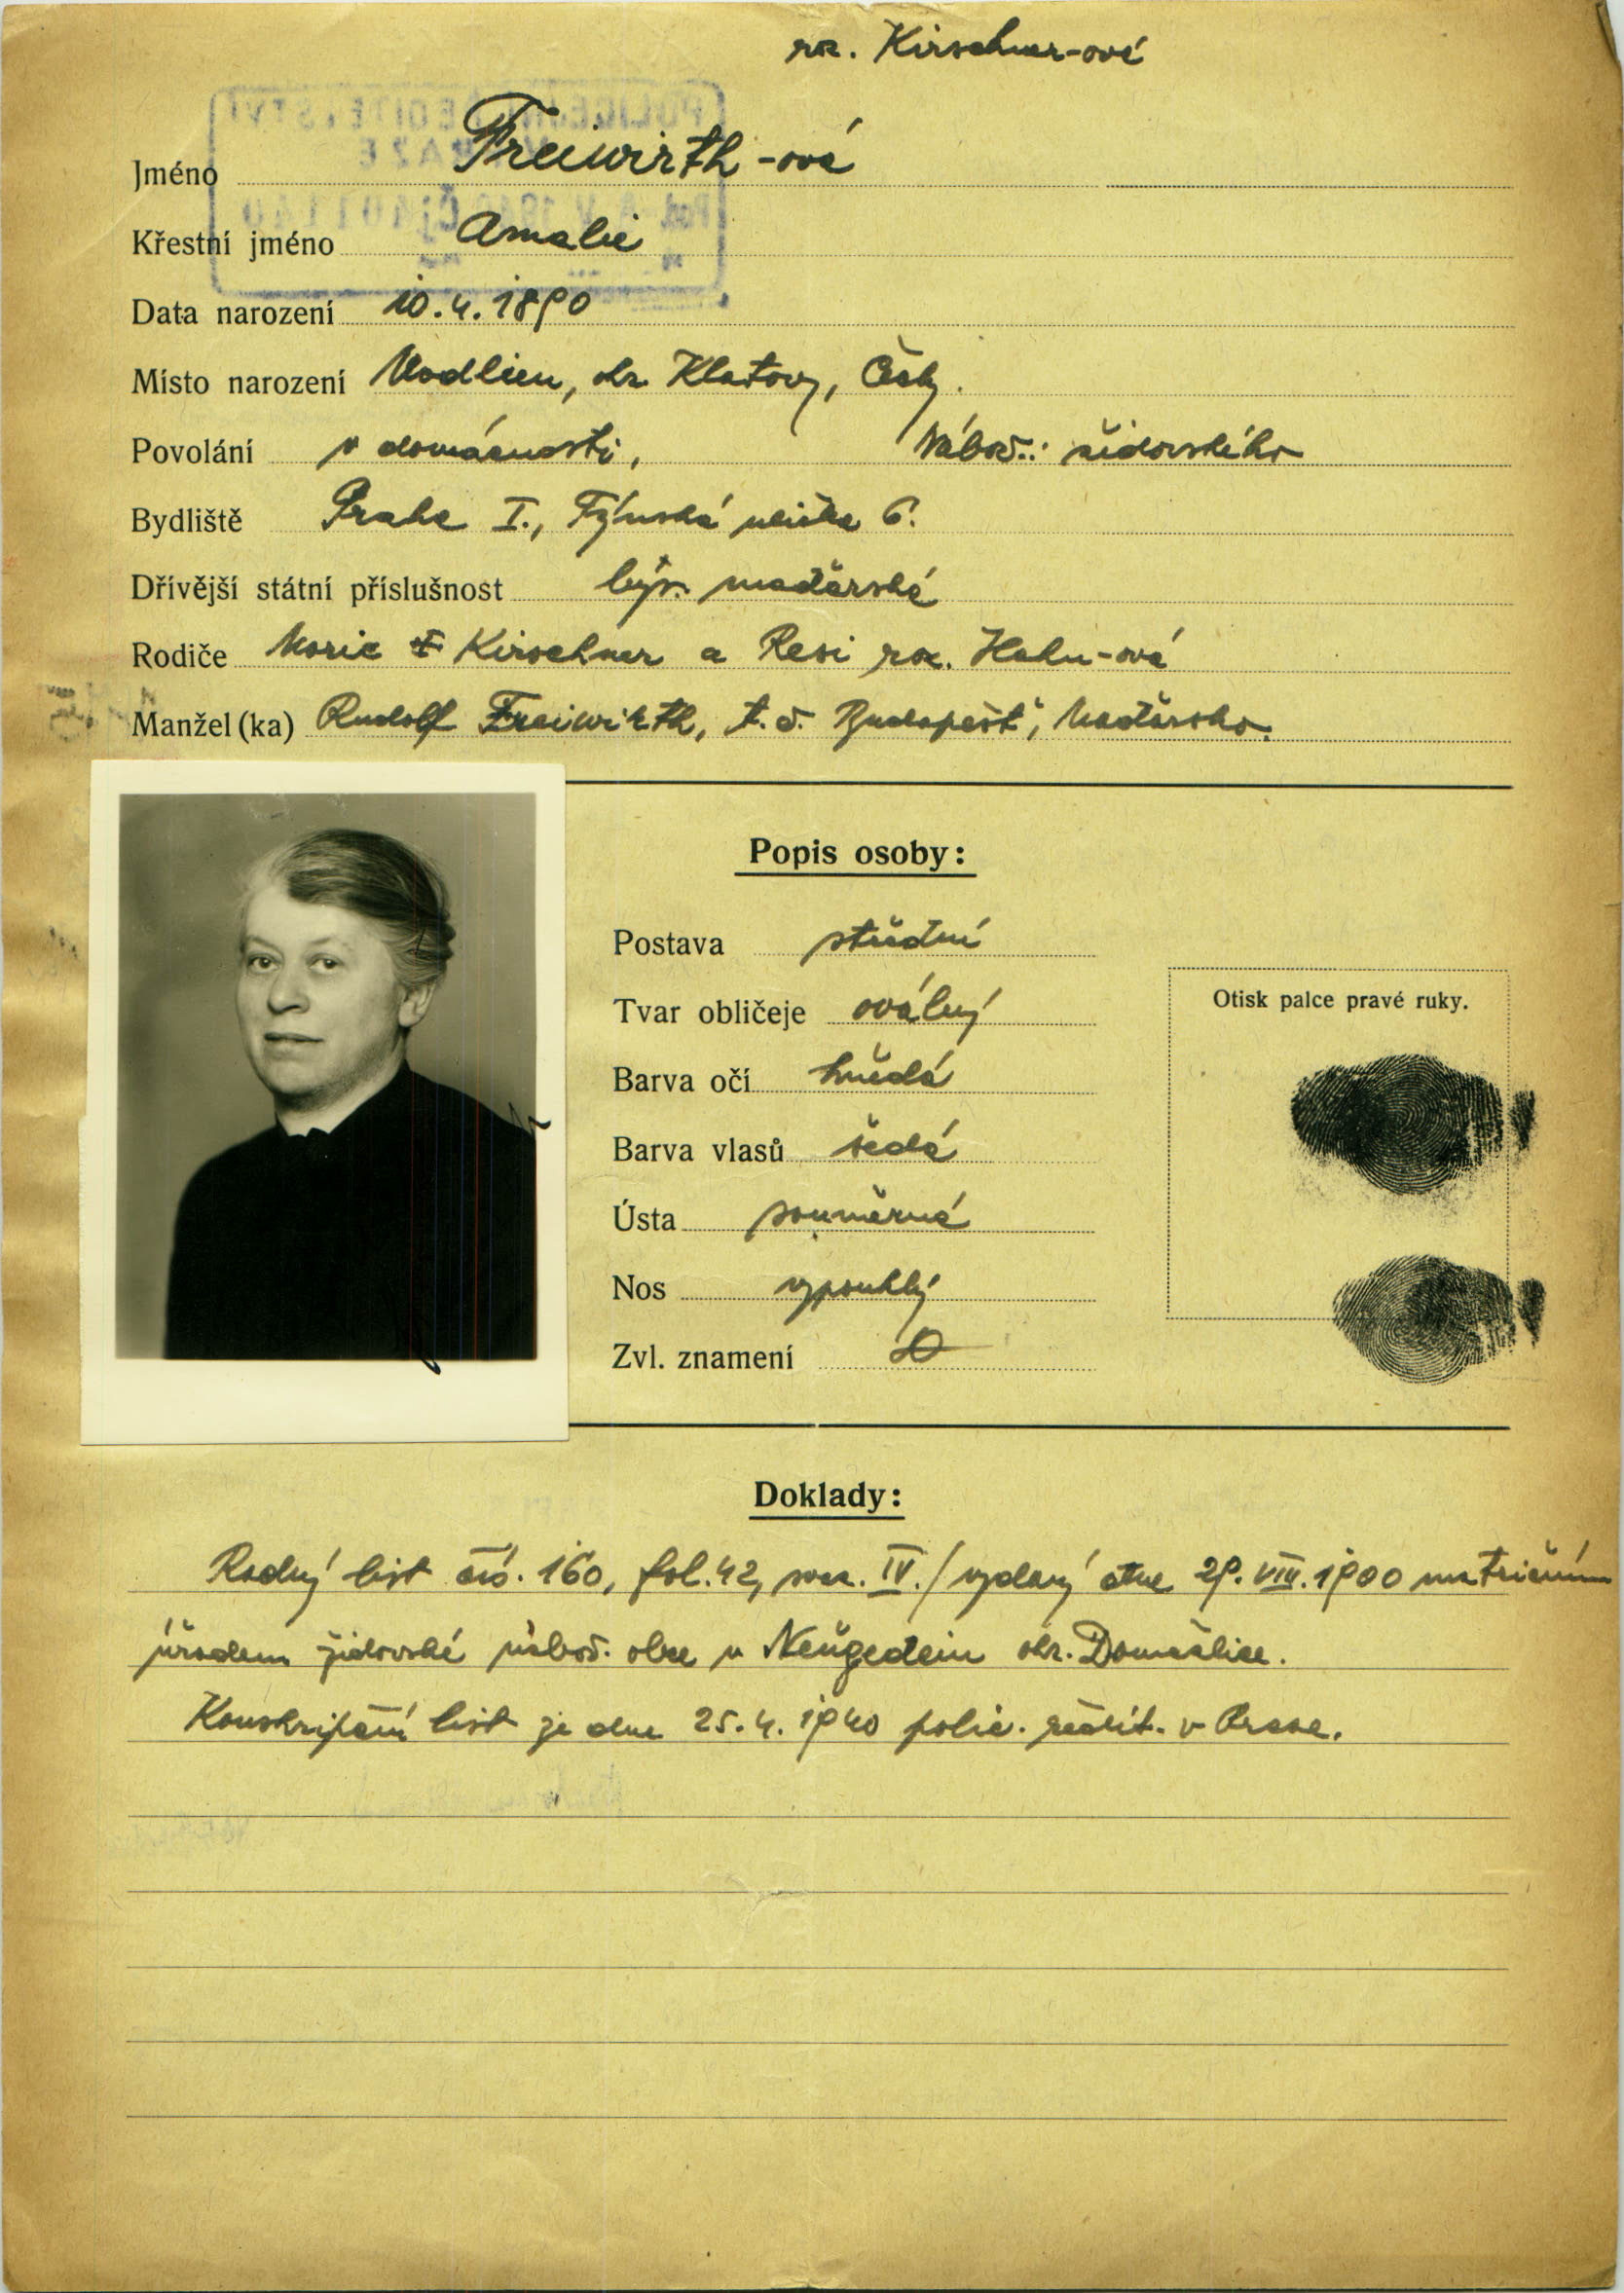 roz. Kirschner-ové
Jméno Freiwirth-ová
Křestní jméno Amalie
Data narození 10.4.1890
Místo narození okr. Klatovy, Čechy.
Povolání v domácnosti, Nábož.: židovského
Bydliště Praha I., Týnská ulička 6.
Dřívější státní příslušnost býv. maďarská
Rodiče Moric Kirschner a Resi roz. Hahn-ová
Manžel(ka) Rudolf Freiwirth, t.č. Budapešť, Maďarsko.
Popis osoby:
Postava střední
Tvar obličeje oválný
Barva očí hnědá
Barva vlasů šedá
Ústa souměrná
Nos vypouklý
Zvl. znamení
Otisk palce pravé ruky.
Doklady:
Rodný list čís. 160, fol. 42, IV./ vydaný dne 29. VIII. 1900 matričním
úřadem židovské nábož. obce v Neugedein okr. Domažlice.
Konskripční list je dne 25.4.1940 polic. ředit. v Praze.